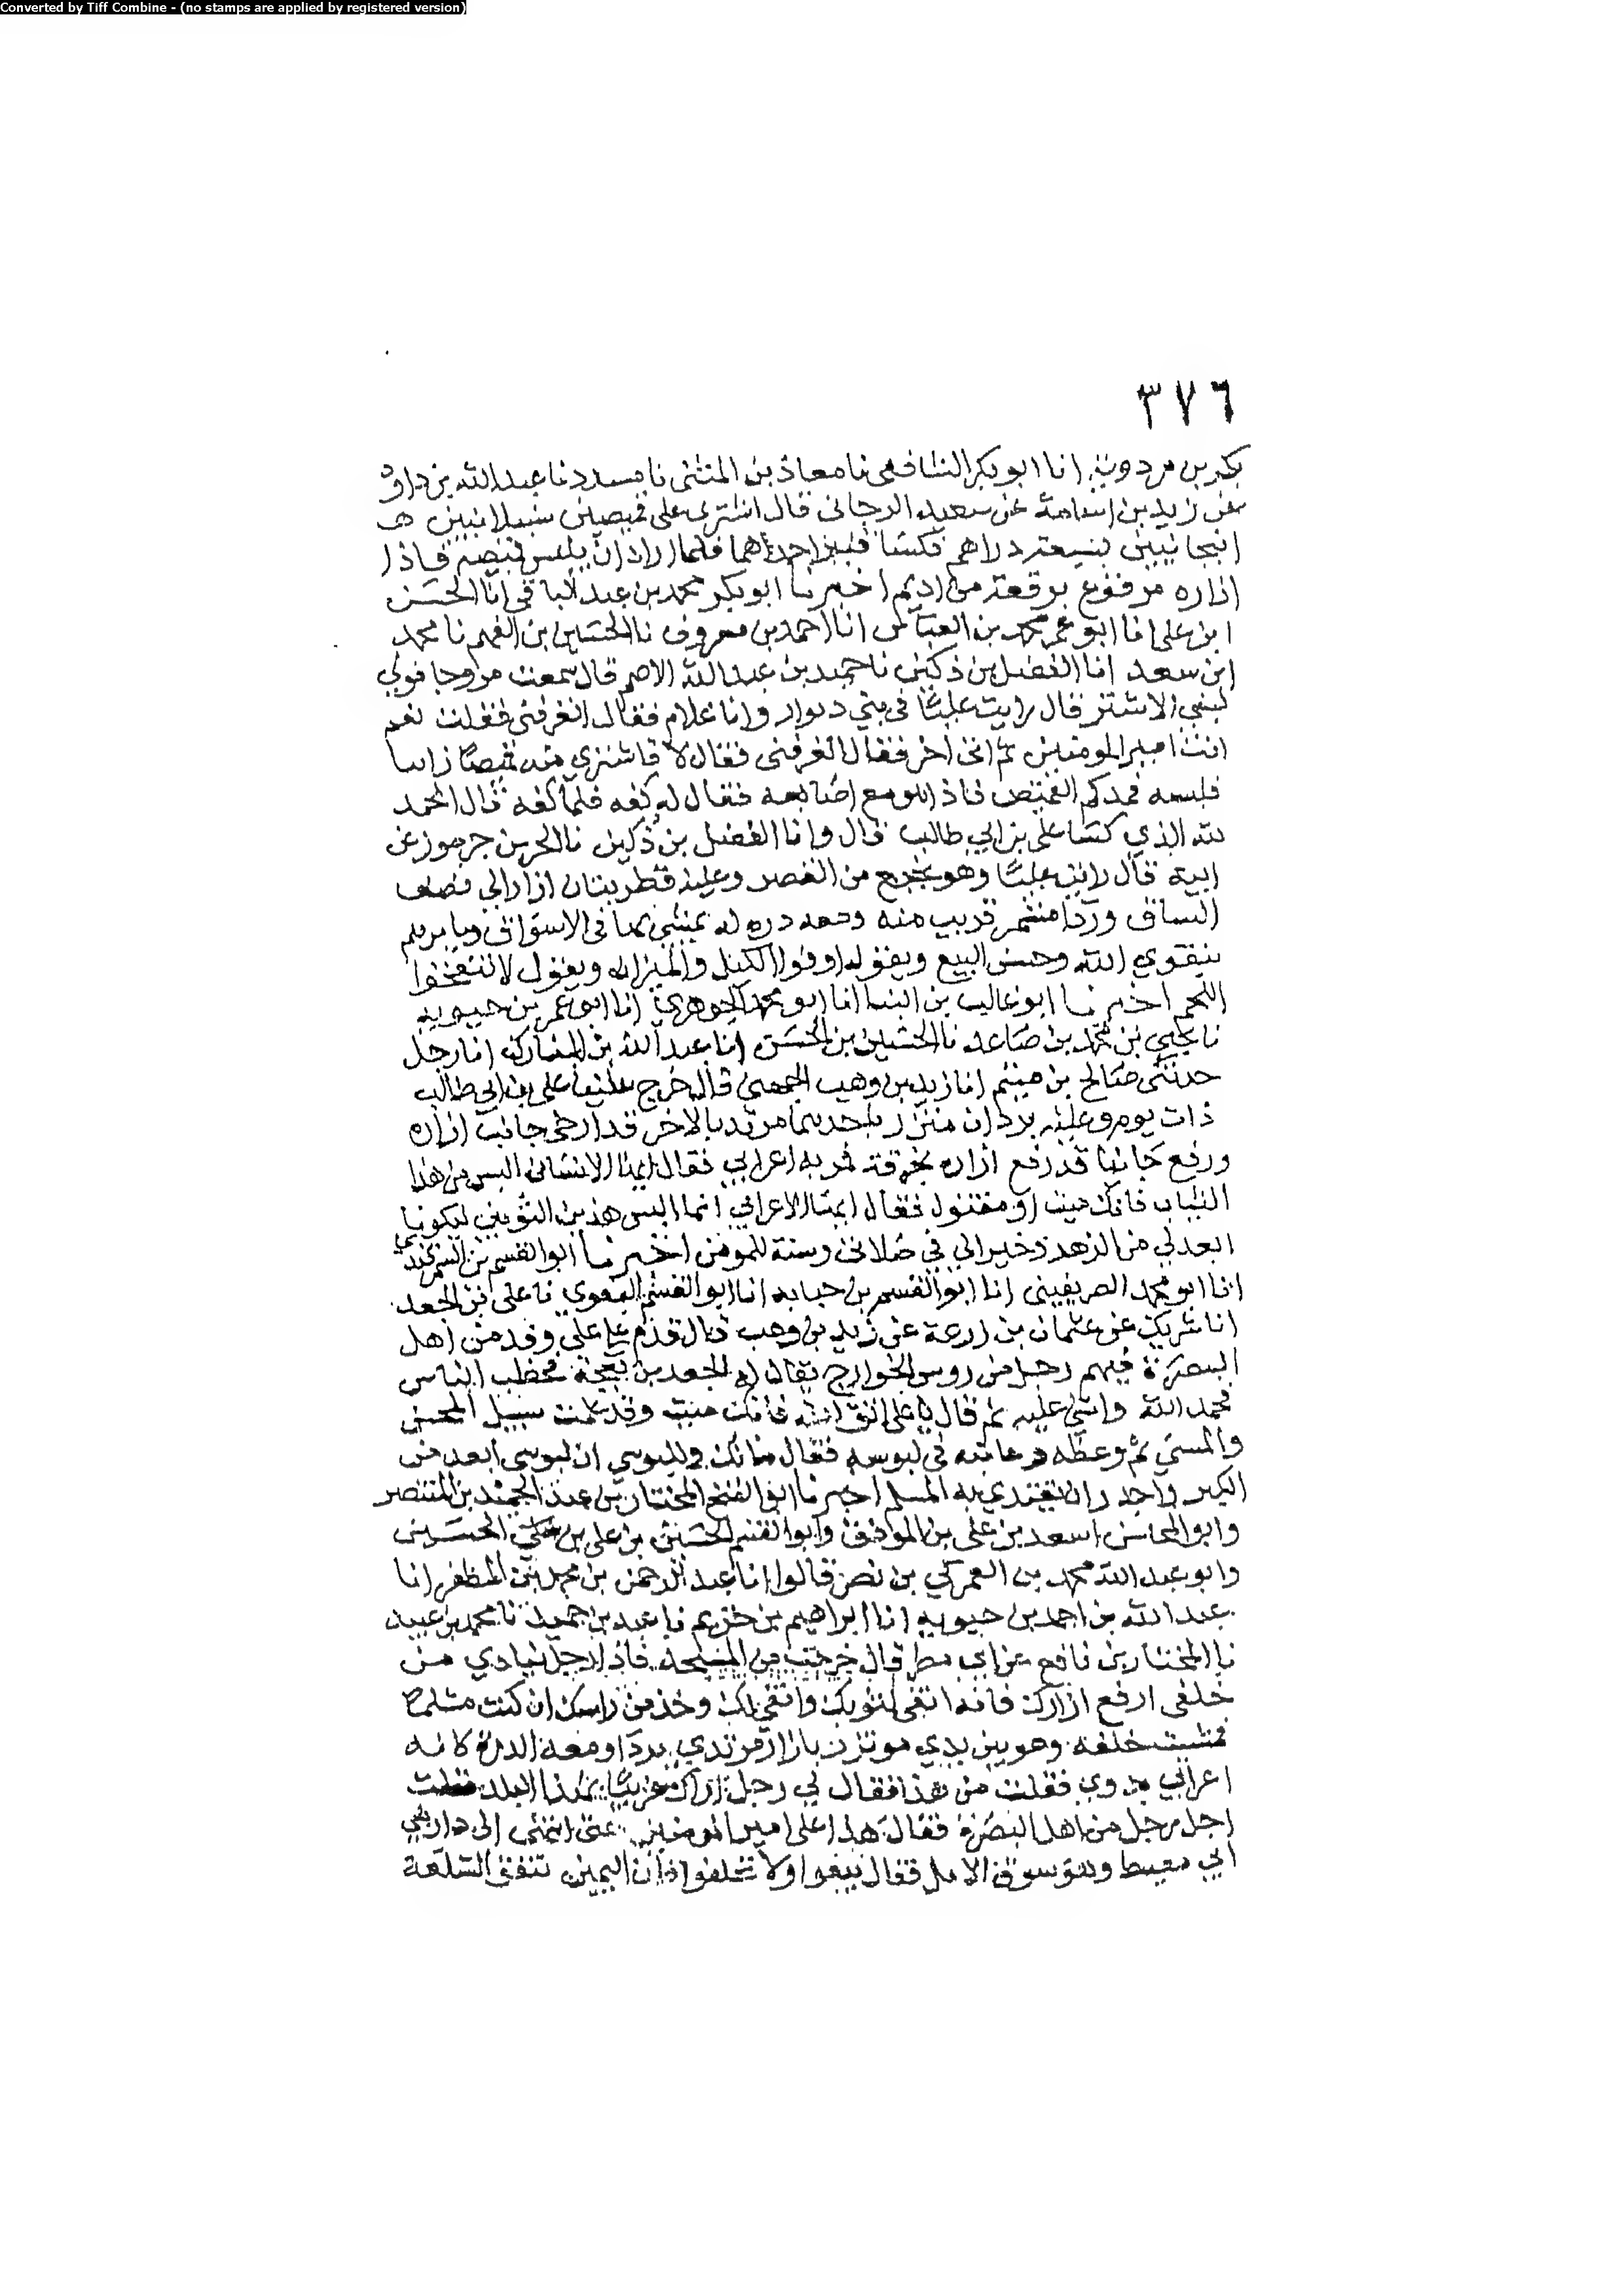 Converted by Tiff Combine - (no stamps are applied by registered version)
٣٧٦
بكر بن مردويه انا ابو بكر الشافعي نا معاذ بن المثنى نا مسدد نا عبد الله بن داود
عن زيد بن اسامة عن سعيد الرجاني قال اشترى علي قميصين سنبلانيين
انبجانيين بسبعة دراهم فكسا قنبر احدهما فلما اراد ان يلبس قميصه فاذا
ازاره مرفوع برقعة من اديم اخبرنا ابو بكر محمد بن عبد الباقي انا الحسن
ابن علي انا ابو عمر محمد بن العباس انا احمد بن معروف نا الحسين بن الفهم نا محمد
ابن سعد انا الفضل بن دكين نا حميد بن عبد الله الاصم قال سمعت فروخا مولى
لبني الاشتر قال رايت عليا في بني ديوار وانا غلام فقال اتعرفني فقلت نعم
انت امير المومنين ثم اتى اخر فقال اتعرفني فقال لا فاشترى منه قميصا زابيا
فلبسه فمد كم القميص فاذا هو مع اصابعه فقال له كفه فلما كفه قال الحمد
لله الذي كسا علي بن ابي طالب قال وانا الفضل بن دكين نا الحر بن جرموز عن
ابيه قال رايت عليا وهو يخرج من القصر وعليه قطريتان ازار الى نصف
الساق وردا مشمر قريب منه ومعه دره له يمشي بها في الاسواق ويامرهم
بتقوي الله وحسن البيع ويقول اوفوا الكيل والميزان ويقول لا تنفخوا
اللحم اخبرنا ابو غالب بن البنا انا ابو محمد الجوهري انا ابو عمر بن حيويه
نا يحيى بن محمد بن صاعد نا الحسين بن الحسن انا عبد الله بن المبارك انا رجل
حدثني صالح بن ميثم انا زيد بن وهب الجهني قال خرج علينا علي بن ابي طالب
ذات يوم وعليه بردان متزر باحدهما مرتد بالاخر قد ارخى جانب ازاره
ورفع جانبا قد رفع ازاره بخرقة فمر به اعرابي فقال ايها الانسان البس من هذا
الثياب فانك ميت او مقتول فقال ايها الاعرابي انما البس هذين الثوبين ليكونا
ابعد لي من الزهو وخير الي في صلاتي وسنة للمومن اخبرنا ابو القسم بن السمرقندي
انا ابو محمد الصريفيني انا ابو القسم بن حبابه انا ابو القسم البغوي نا علي بن الجعد
انا شريك عن عثمان بن ابي زرعة عن زيد بن وهب قال قدم على علي وفد من اهل
البصرة فيهم رجل من روس الخوارج يقال له الجعد بن بعجة فخطب الناس
فحمد الله واثنى عليه ثم قال يا علي اتق الله فانك ميت وقد علمت سبيل المحسن
والمسئ ثم وعظه وعاتبه في لبوسه فقال مالك وللبوسي ان لبوسي ابعد من
الكبر واجدر ان يقتدي به المسلم اخبرنا ابو الفتح المختار بن عبد الحميد بن المنتصر
وابو المحاسن اسعد بن علي بن الموفق وابو القسم الحسين بن علي بن الحسين
وابو عبد الله محمد بن العمركي بن نصر قالوا انا عبد الرحمن بن محمد بن المظفر انا
عبد الله بن احمد بن حيويه انا ابراهيم بن خزيم نا عبد بن حميد نا محمد بن عبيد
نا المختار بن نافع عن ابي مطر قال خرجت من المسجد فاذا رجل ينادي من
خلفي ارفع ازارك فانه اتقى لثوبك وانقى لك وخذ من راسك ان كنت مسلما
فمشيت خلفه وهو بين يدي موتزر بازار مرتدي بردا ومعه الدرة كانه
اعرابي بدوي فقلت من هذا فقال لي رجل اراك غريبا بهذا البلد فقلت
اجل رجل من اهل البصرة فقال هذا علي امير المومنين حتى انتهى الى دار بني
ابي معيط وهو سوق الابل فقال بيعوا ولا تحلفوا فان اليمين تنفق السلعة